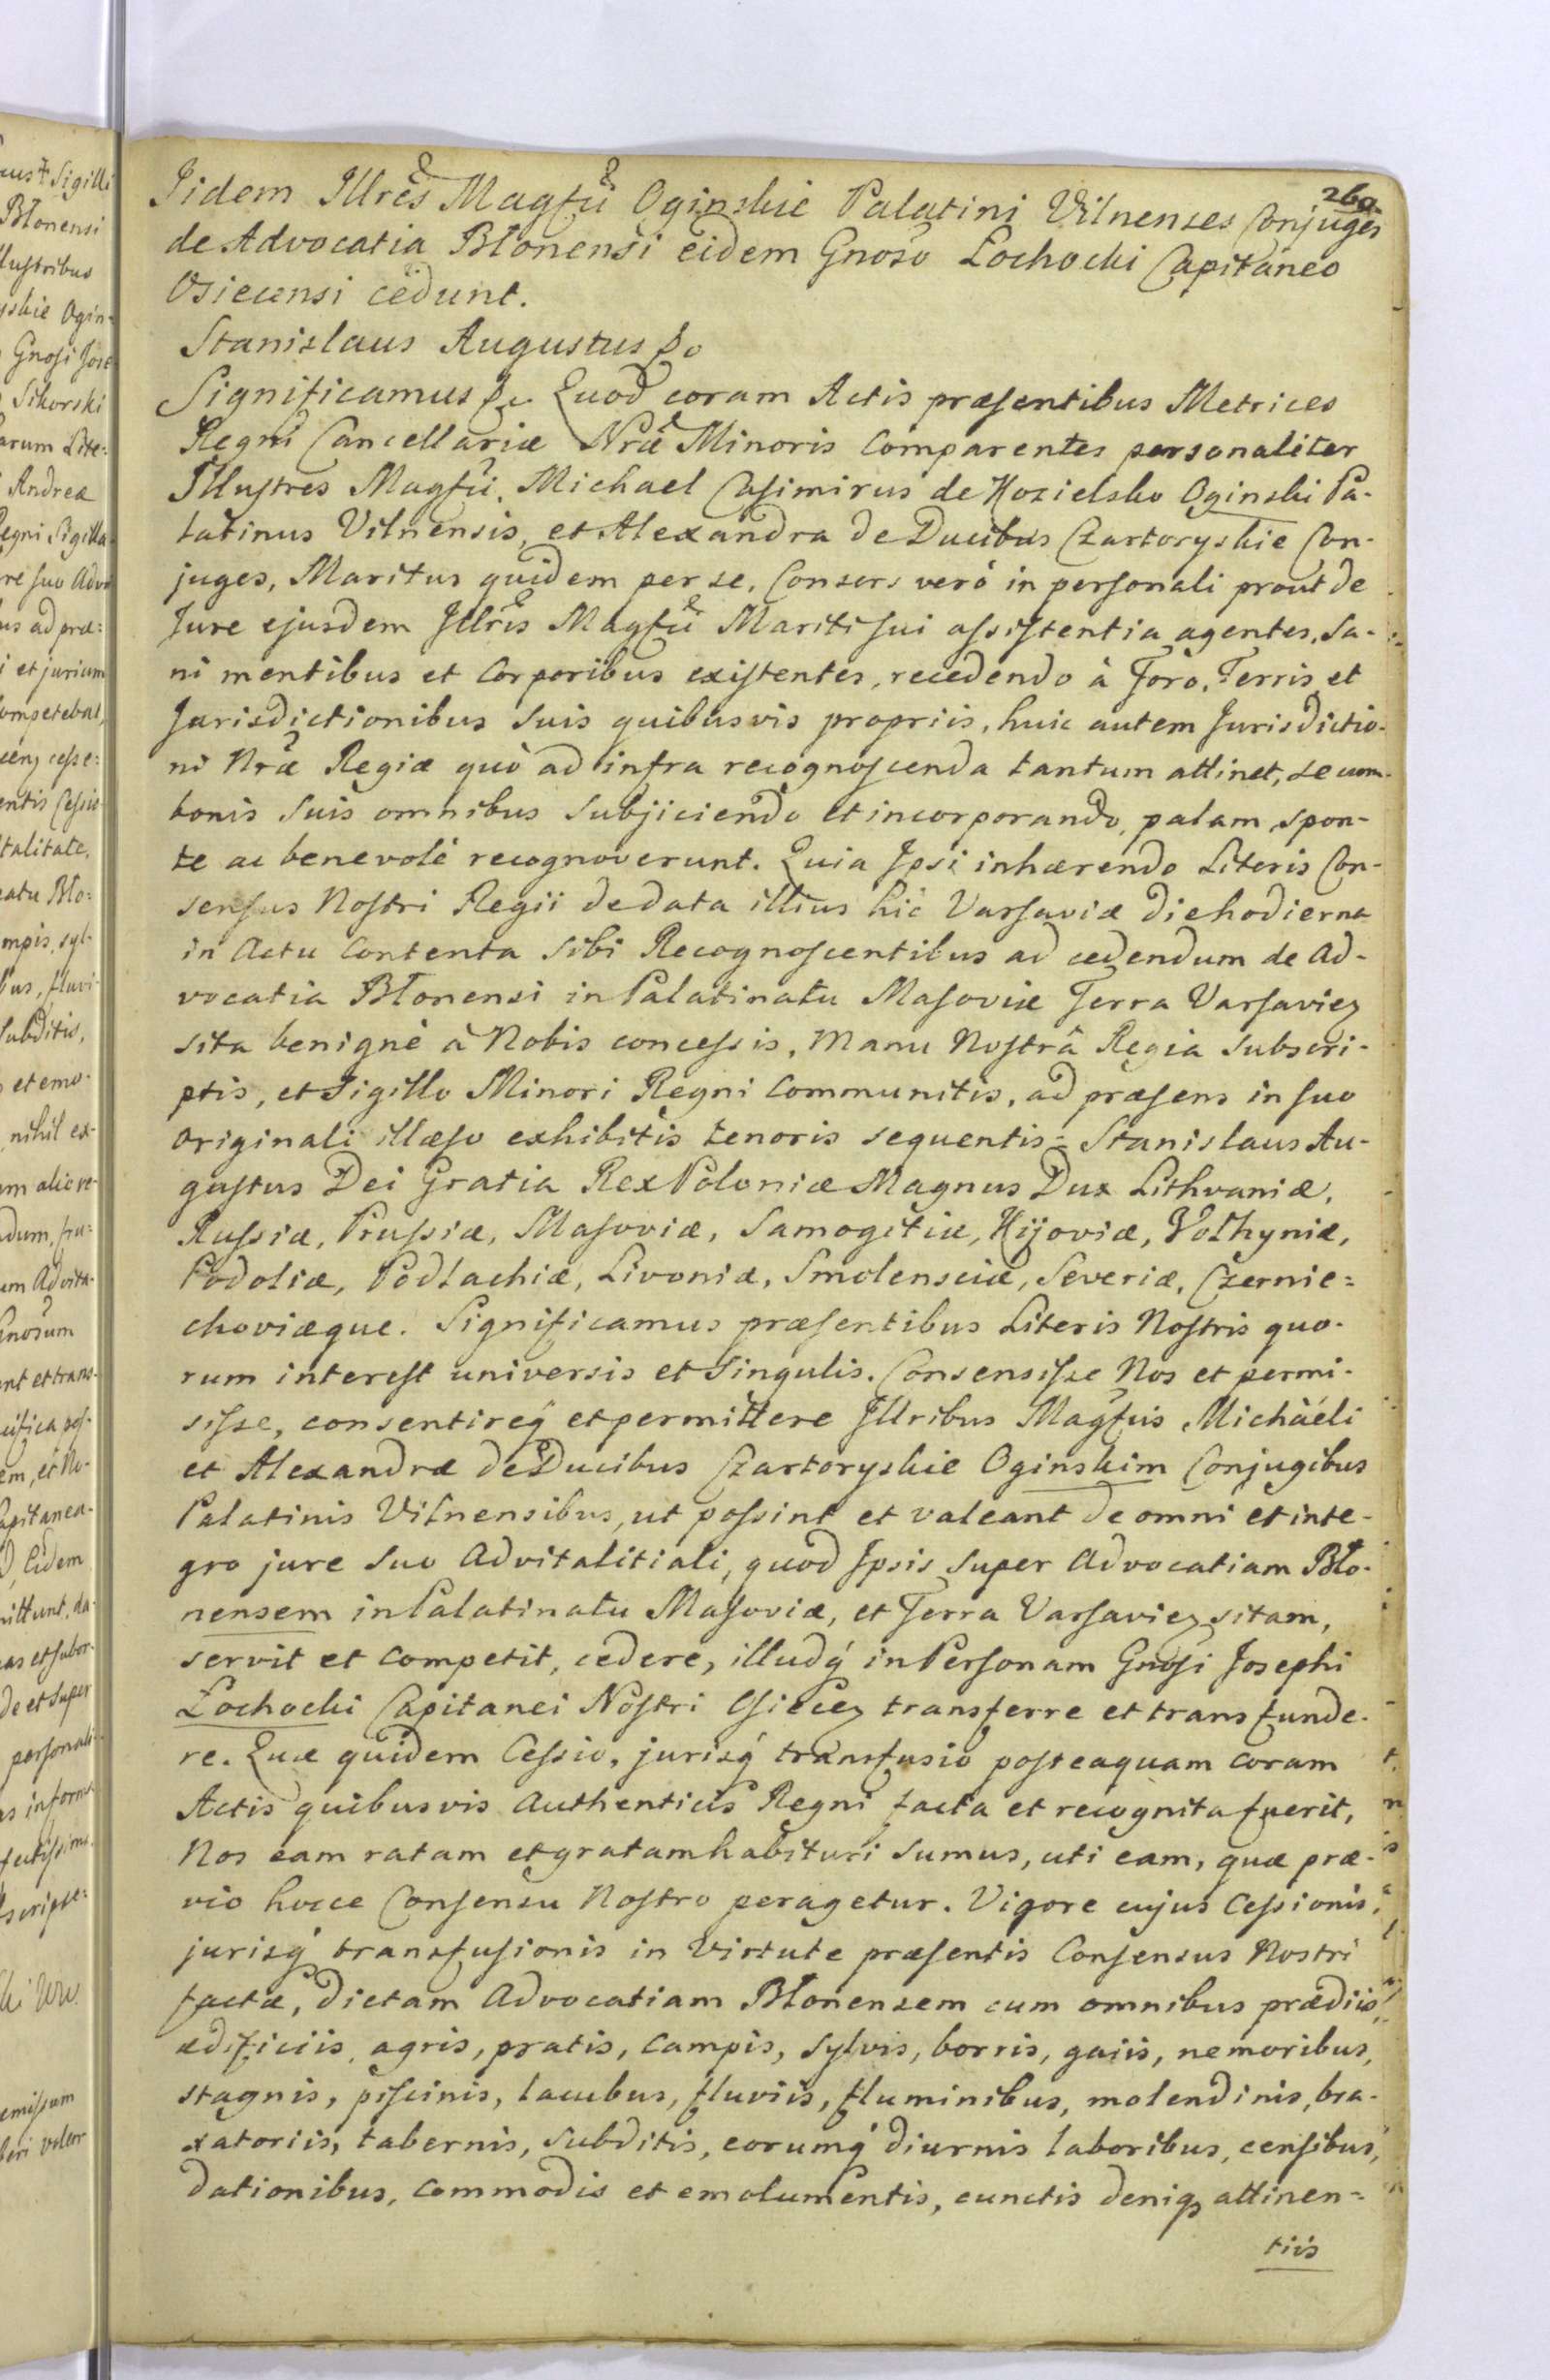 260.
Iidem Illres Magfci Oginskie Palatini Vilnenses Conjuges
de Advocatia Błonensi eidem Gnoso Łochocki Capitaneo
Osiecensi cedunt.
Stanislaus Augustus &c
Significamus &c. Quod coram Actis præsentibus Metrices
Regni Cancellariæ Nræ Minoris Comparentes personaliter
Illustres Magfci, Michael Casimirus de Kozielsko Oginski Pa-
latinus Vilnensis, et Alexandra de Ducibus Czartoryskie Con-
juges, Maritus quidem per se, Consors verò in personali prout de
Jure ejusdem Illris Magfci Mariti sui assistentia agentes, Sa-
ni mentibus et Corporibus existentes, recedendo à Foro, Terris et
Jurisdictionibus Suis quibusvis propriis, huic autem Jurisdictio-
ni Nræ Regiæ quò ad infra recognoscenda tantum attinet, se cum
bonis Suis omnibus Subjiciendo et incorporando, palam, spon-
te ac benevolè recognoverunt. Quia Ipsi inhærendo Literis Con-
sensus Nostri Regii de data illius hic Varsaviæ die hodierna
in Actu Contenta Sibi Recognoscentibus ad cedendum de Ad-
vocatia Błonensi in Palatinatu Masoviæ Terra Varsavień
sita benignè à Nobis concessis, Manu Nostrâ Regia Subscri-
ptis, et Sigillo Minori Regni Communitis, ad præsens in suo
Originali illæso exhibitis tenoris sequentis= Stanislaus Au-
gustus Dei Gratia Rex Poloniæ Magnus Dux Lithvaniæ,
Russiæ, Prussiæ, Masoviæ, Samogitiæ, Kijoviæ, Vołhyniæ,
Podoliæ, Podlachiæ, Livoniæ, Smolensciæ, Severiæ, Czernie=
choviæque. Significamus præsentibus Literis Nostris quo-
rum interest universis et Singulis. Consensisse Nos et permi-
sisse, consentireq́ et permittere Illribus Magfcis Michäéli
et Alexandræ de Ducibus Czartoryskie Oginskim Conjugibus
Palatinis Vilnensibus, ut possint et valeant de omni et inte-
gro jure Suo Advitalitiali, quod Ipsis Super Advocatiam Bło-
nensem in Palatinatu Masoviæ, et Terra Varsavień sitam,
servit et Competit, cedere, illudq́ in Personam Gnosi Josephi
Łochocki Capitanei Nostri Osieceń transferre et transfunde-
re. Quæ quidem Cessio, jurisq́ transfusio posteaquam coram
Actis quibusvis Authenticis Regni facta et recognita fuerit,
Nos eam ratam et gratam habituri Sumus, uti eam, quæ præ-
vio hocce Consensu Nostro peragetur. Vigore cujus Cessionis,
jurisq́ transfusionis in Virtute præsentis Consensus Nostri
factæ, dictam Advocatiam Błonensem cum omnibus prædiis,
ædificiis, agris, pratis, Campis, Sylvis, borris, gaiis, nemoribus,
stagnis, piscinis, lacubus, fluviis, fluminibus, molendinis, bra-
xatoriis, tabernis, Subditis, eorumq́ diurnis laboribus, censibus,
dationibus, Commodis et emolumentis, cunctis deniq́ attinen=
tiis